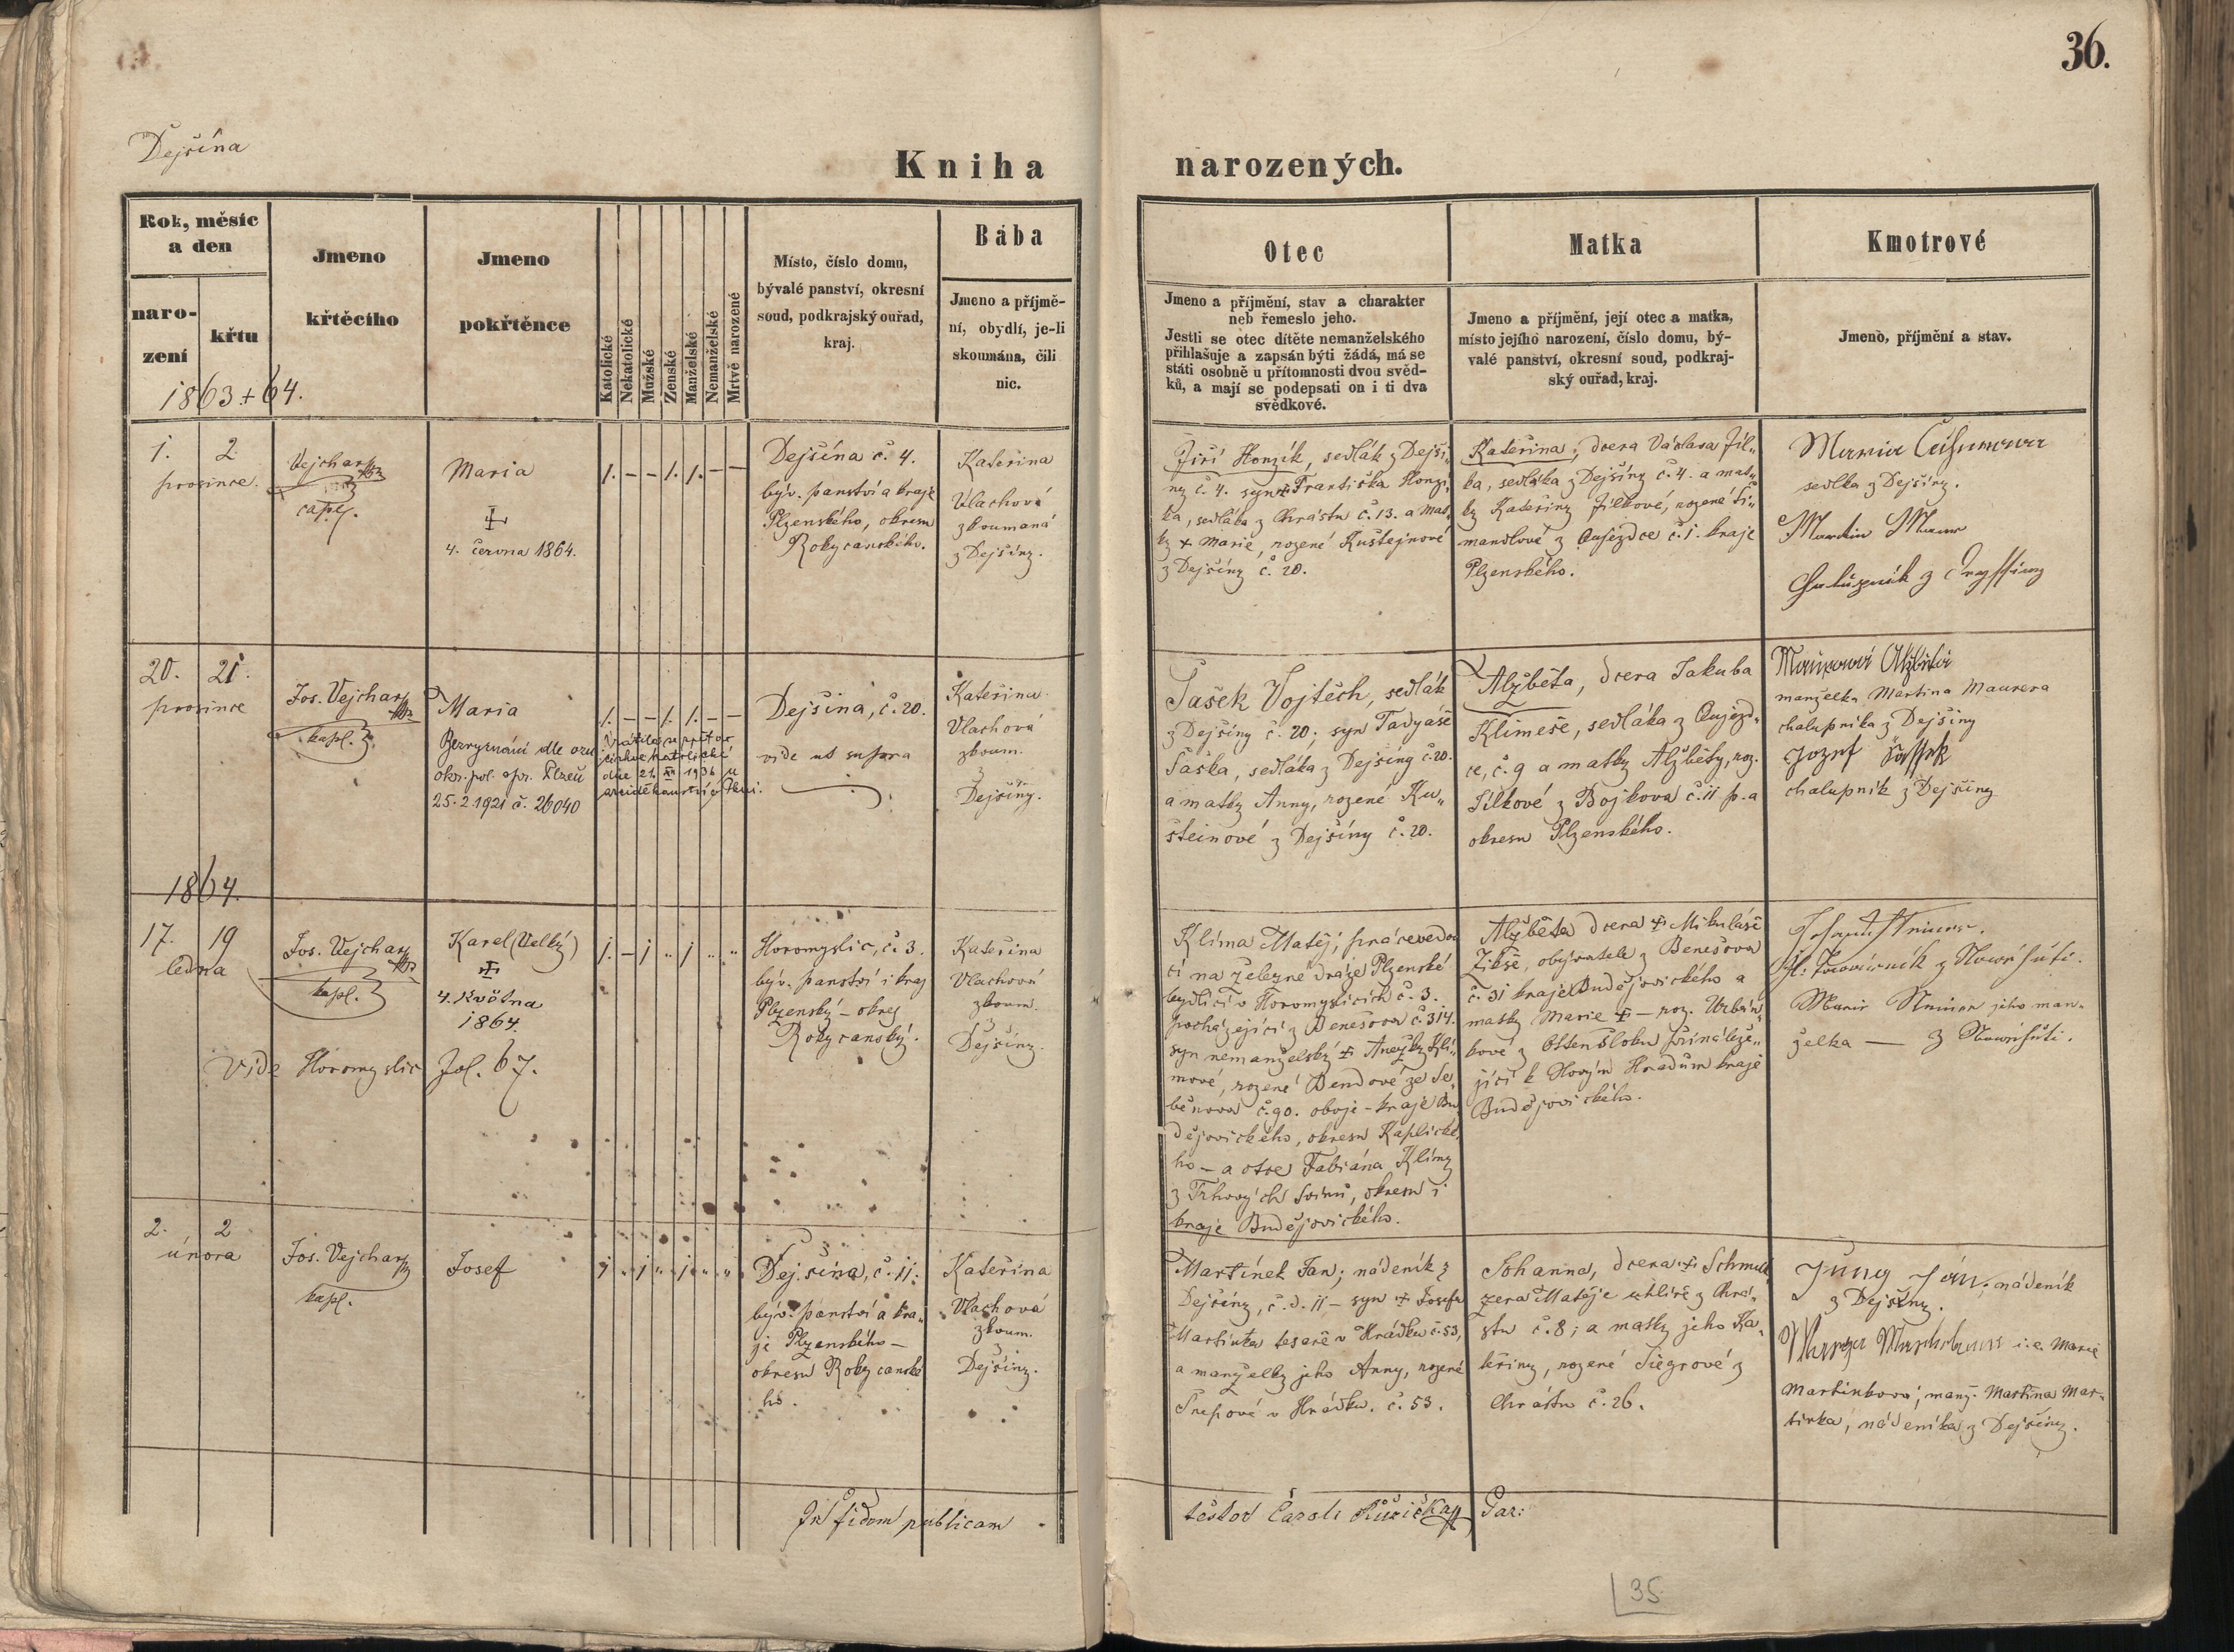 36.
Dejšína
Kniha narozených.
Rok, měsíc
a den
naro-
zení
křtu
1863 + 64.
Jmeno
křtěcího
Jmeno
pokřtěnce
Katolické
Nekatolické
Mužské
Ženské
Manželské
Nemanželské
Mrtvě narozené
Místo, číslo domu,
bývalé panství, okresní
soud, podkrajský ouřad,
kraj.
Bába
Jmeno a příjmě-
ní, obydlí, je-li
skoumána, čili
nic.
Otec
Jmeno a příjmění, stav a charakter
neb řemeslo jeho.
Jestli se otec dítěte nemanželského
přihlašuje a zapsán býti žádá, má se
státi osobně u přítomnosti dvou svěd-
ků, a mají se podepsati on i ti dva
svědkové.
Matka
Jmeno a příjmění, její otec a matka,
místo jejího narození, číslo domu, bý-
valé panství, okresní soud, podkraj-
ský ouřad, kraj.
Kmotrové
Jmeno, příjmění a stav.
1. 2.
prosince.
Vejchar
capl.
Maria
4. června 1864.
1. – – 1. 1. – –
Dejšína č. 4.
býv. panství a kraje
Plzenského, okresu
Rokycanského.
Kateřina
Vlachová
zkoumaná
z Dejšíny.
Jiří Honzík, sedlák z Dejší„
ny č. 4. syn + Františka Honzí„
ka, sedláka z Chrástu č. 13. a mat„
ky + Marie, rozené Kuštejnové
z Dejšíny č. 20.
Kateřina, dcera Václava Jíl„
ka, sedláka z Dejšíny č. 4. a mat„
ky Kateřiny Jílkové, rozené Ši„
mandlové z Oujezdce č. 1. kraje
Plzenského.
Maria
sedlka z Dejšíny.
Martin Maur
z
20. 21.
prosince
Jos. Vejchar
kapl.
Maria
Bezvyznání dle ozn
okr. pol. spr. Plzeň
25.2.1921 č. 26040
1. – – 1. 1. – –
Vrátila se zpět do
církve katolické
dne 21. XI 1936 u
arciděkanství v Plzni.
Dejšina, č. 20.
vide ut supra
Kateřina
Vlachová
zkoum.
z
Dejšíny.
Sašek Vojtěch, sedlák
z Dejšíny č. 20; syn Tadyáše
Saška, sedláka z Dejšíny č. 20.
a matky Anny, rozené Ku„
šteinové z Dejšíny č. 20.
Alžběta, dcera Jakuba
Klimeše, sedláka z Oujezd„
ce, č. 9 a matky Alžběty, roz.
Jílkové z Bojkova č. 11 p. a
okresu Plzenského.
Maurová Alžběta
manželka Martina Maurera
chalupníka z Dejšiny
Jozef Saššek
chalupník z Dejšiny
1864.
17. 19
ledna
Jos. Vejchar
kapl.
Karel (Velký)
4. Května
1864.
vide Horomyslic Fol. 67.
1. – 1 „ 1 „ „
Horomyslic, č. 3.
býv. panství i kraj
Plzenský – okres
Rokycanský.
Kateřina
Vlachová
zkoum.
z
Dejšíny.
Klíma Matěj, prácevedou
cí na železné dráze Plzenské
bydlící v Horomyslicích č. 3.
pocházející z Benešova č. 314.
syn nemanželský + Anežky Klí„
mové, rozené Bendové ze Se„
běnova č. 90. oboje – kraje Bu
dějovického, okresu Kaplické
ho – a otce Fabiána Klímy
z Trhových Svinů, okresu i
kraje Budějovického.
Alžběta dcera + Mikuláše
Zikše, obývatele z Benešova
č. 31 kraje Budějovického a
matky Marie + – roz. Urbán„
kové z přináleže„
jící k Novým Hradům kraje
Budějovického.
Marie jeho man„
želka — z
2. 2
února
Jos. Vejchar
kapl.
Josef
1 „ 1 „ 1 „ „
Dejšína, č. 11.
býv. panství a kra„
je Plzenského –
okresu Rokycanské
ho.
Kateřina
Vlachová
zkoum.
z
Dejšíny.
Martínek Jan; nádeník z
Dejšíny, č. d. 11 – syn + Josefa
Martinka tesaře v Hrádku č. 53,
a manželky jeho Anny, rozené
v Hrádku. č. 53.
Johanna, dcera +
Matěje uhlíře z Chrá„
stu č. 8; a matky jeho Ka„
teřiny, rozené Siegrové z
Chrástu č. 26.
Jung Ján, nádeník
z Dejšiny.
i.e. Marie
Martinkova; manž. Martina Mar„
tinka, nádeníka z Dejšíny.
In fidem publicam
testor Caroli Růžička Par:
35